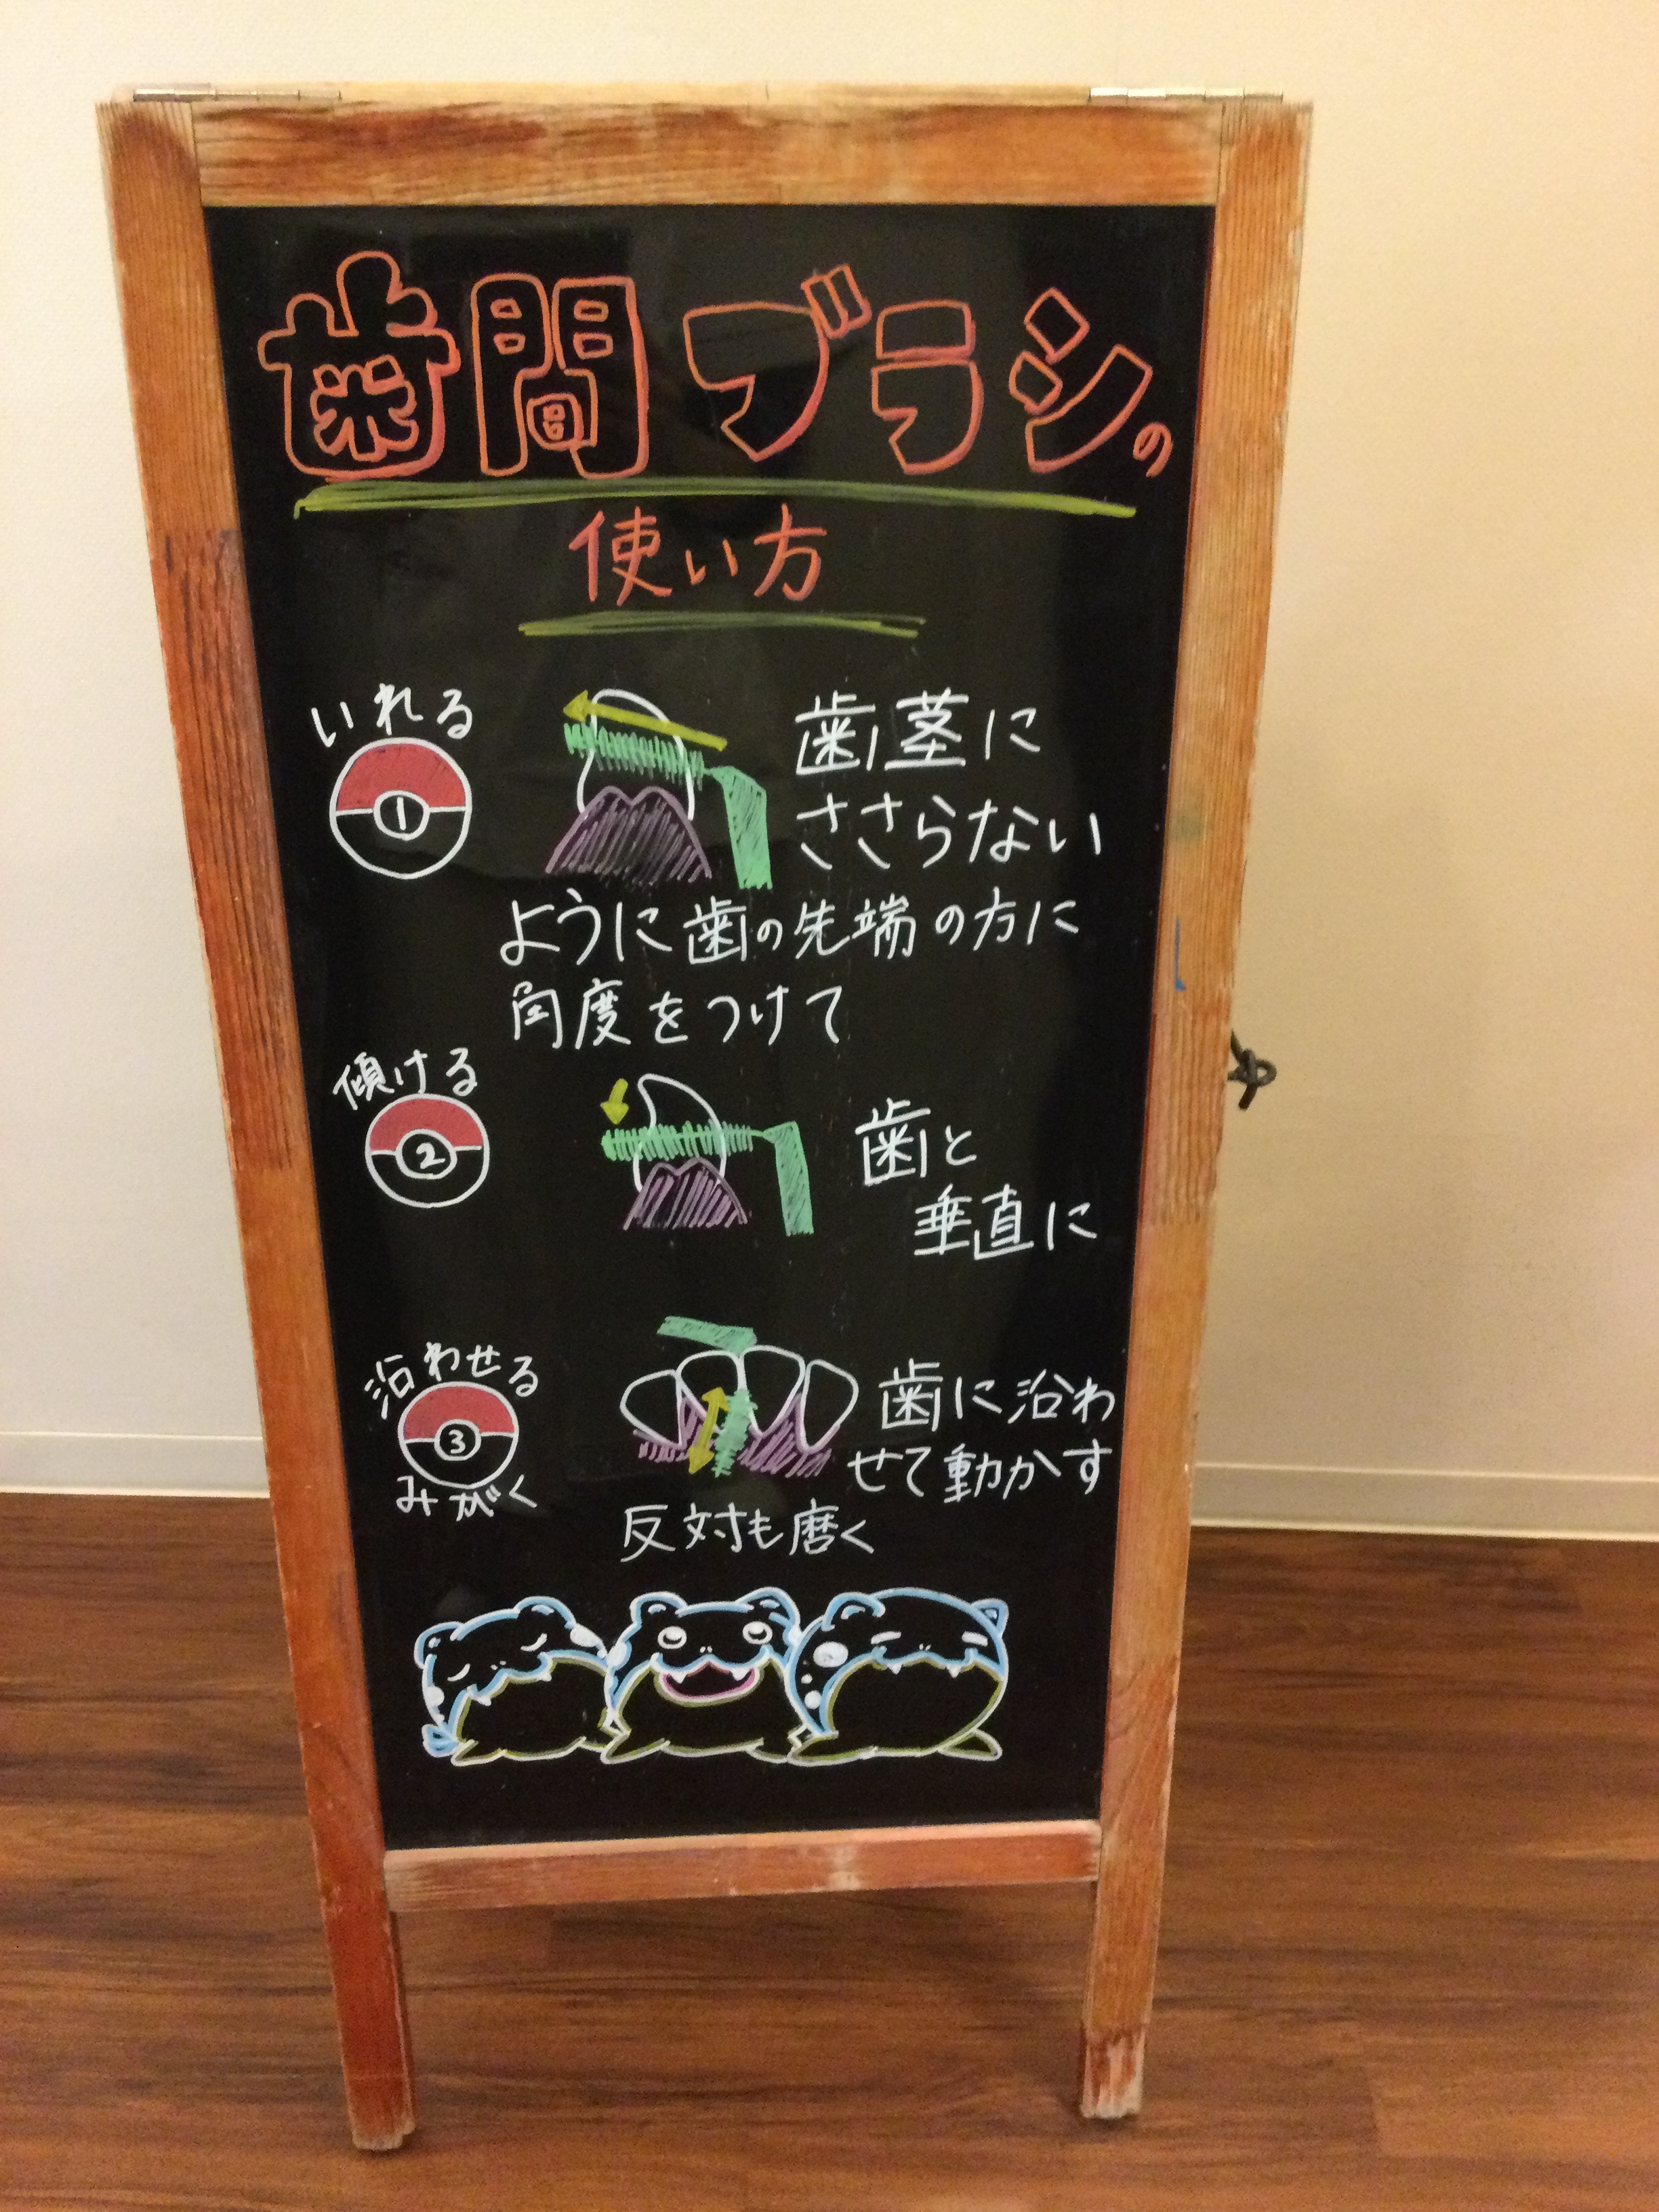 歯間ブラシの
使い方
いれる
①
歯茎に
ささらない
ように歯の先端の方に
角度をつけて
傾ける
②
歯と
垂直に
沿わせる
③
みがく
歯に沿わ
せて動かす
反対も磨く